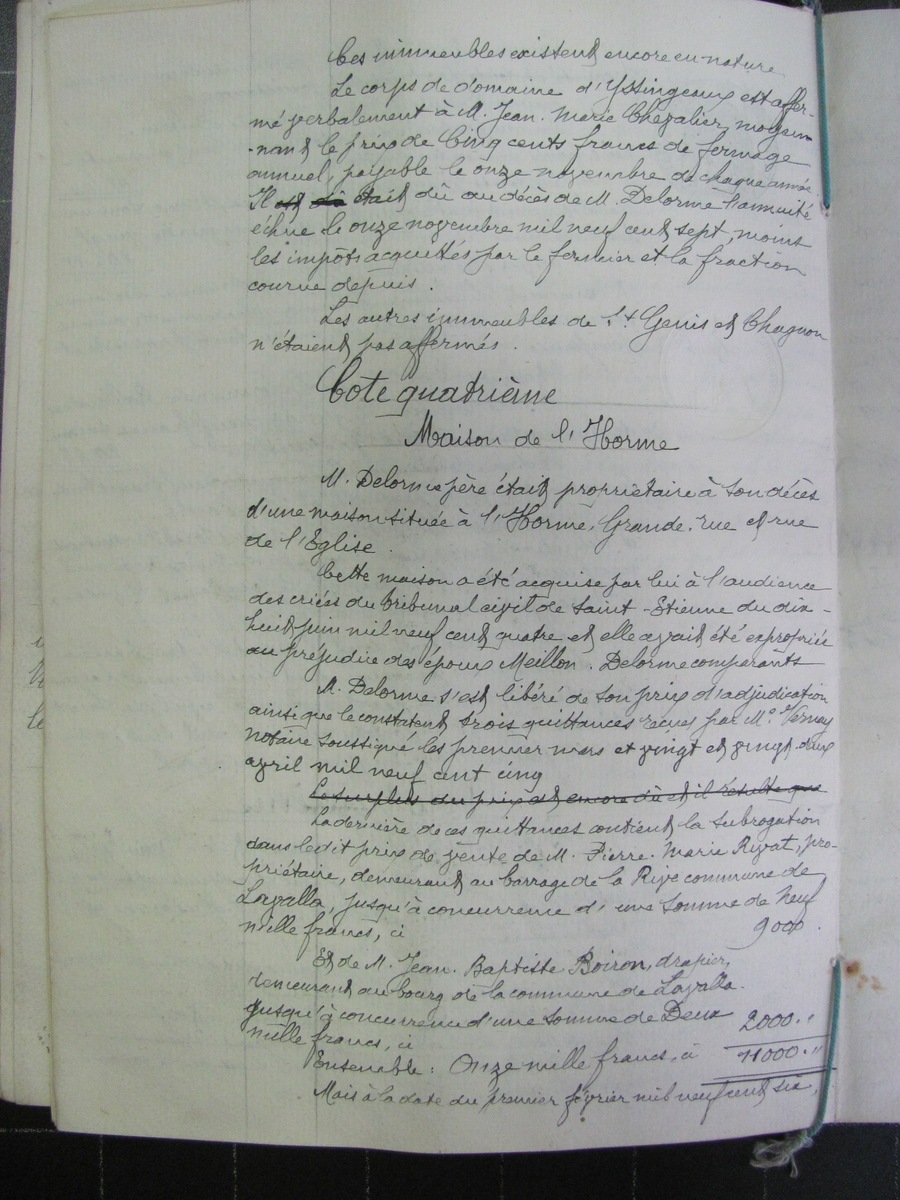 Ces immeubles existent encore en nature
Le corps de domaine d'Yssingeaux est affer-
mé verbalement à M. Jean. Marie Chevalier, moyen-
-nant le prix de Cinq cents francs de fermage
annuel, payable le onze novembre de chaque année.
Il est dû était dû au décès de M. Delorme l'annuité
échue le onze novembre mil neuf cent sept, moins
les impôts acquittés par le fermier et la fraction
courue depuis.
Les autres immeubles de St Genis et Chagnon
n'étaient pas affermés.
Cote quatrième
Maison de l'Horme
M. Delorme père était propriétaire à son décès
d'une maison située à l'Horme, Grande. rue et rue
de l'Eglise.
Cette maison a été acquise par lui à l'audience
des criées du tribunal civil de Saint-Etienne du dix-
huit juin mil neuf cent quatre et elle avait été expropriée
au préjudice des époux Meillon. Delorme comparants
M. Delorme s'est libéré de son prix d'adjudication
ainsi que le constatent trois quittances reçues par Me. Vernay
notaire soussigné les premier mars et vingt et vingt-deux
avril mil neuf cent cinq
Le surplus du prix est encore dû et il résulte que
La dernière de ces quittances contient la subrogation
dans ledit prix de vente de M. Pierre. Marie Rivat, pro-
priétaire, demeurant au barrage de la Rive commune de
Lavalla, jusqu'à concurrence d'une somme de Neuf
mille francs, ci 9000.
Et de M. Jean. Baptiste Boiron, drapier,
demeurant au bourg de la commune de Lavalla.
jusqu'à concurrence d'une somme de Deux
mille francs, ci 2000."
Ensemble: Onze mille francs, ci 11000."
Mais à la date du premier février mil neuf cent six,